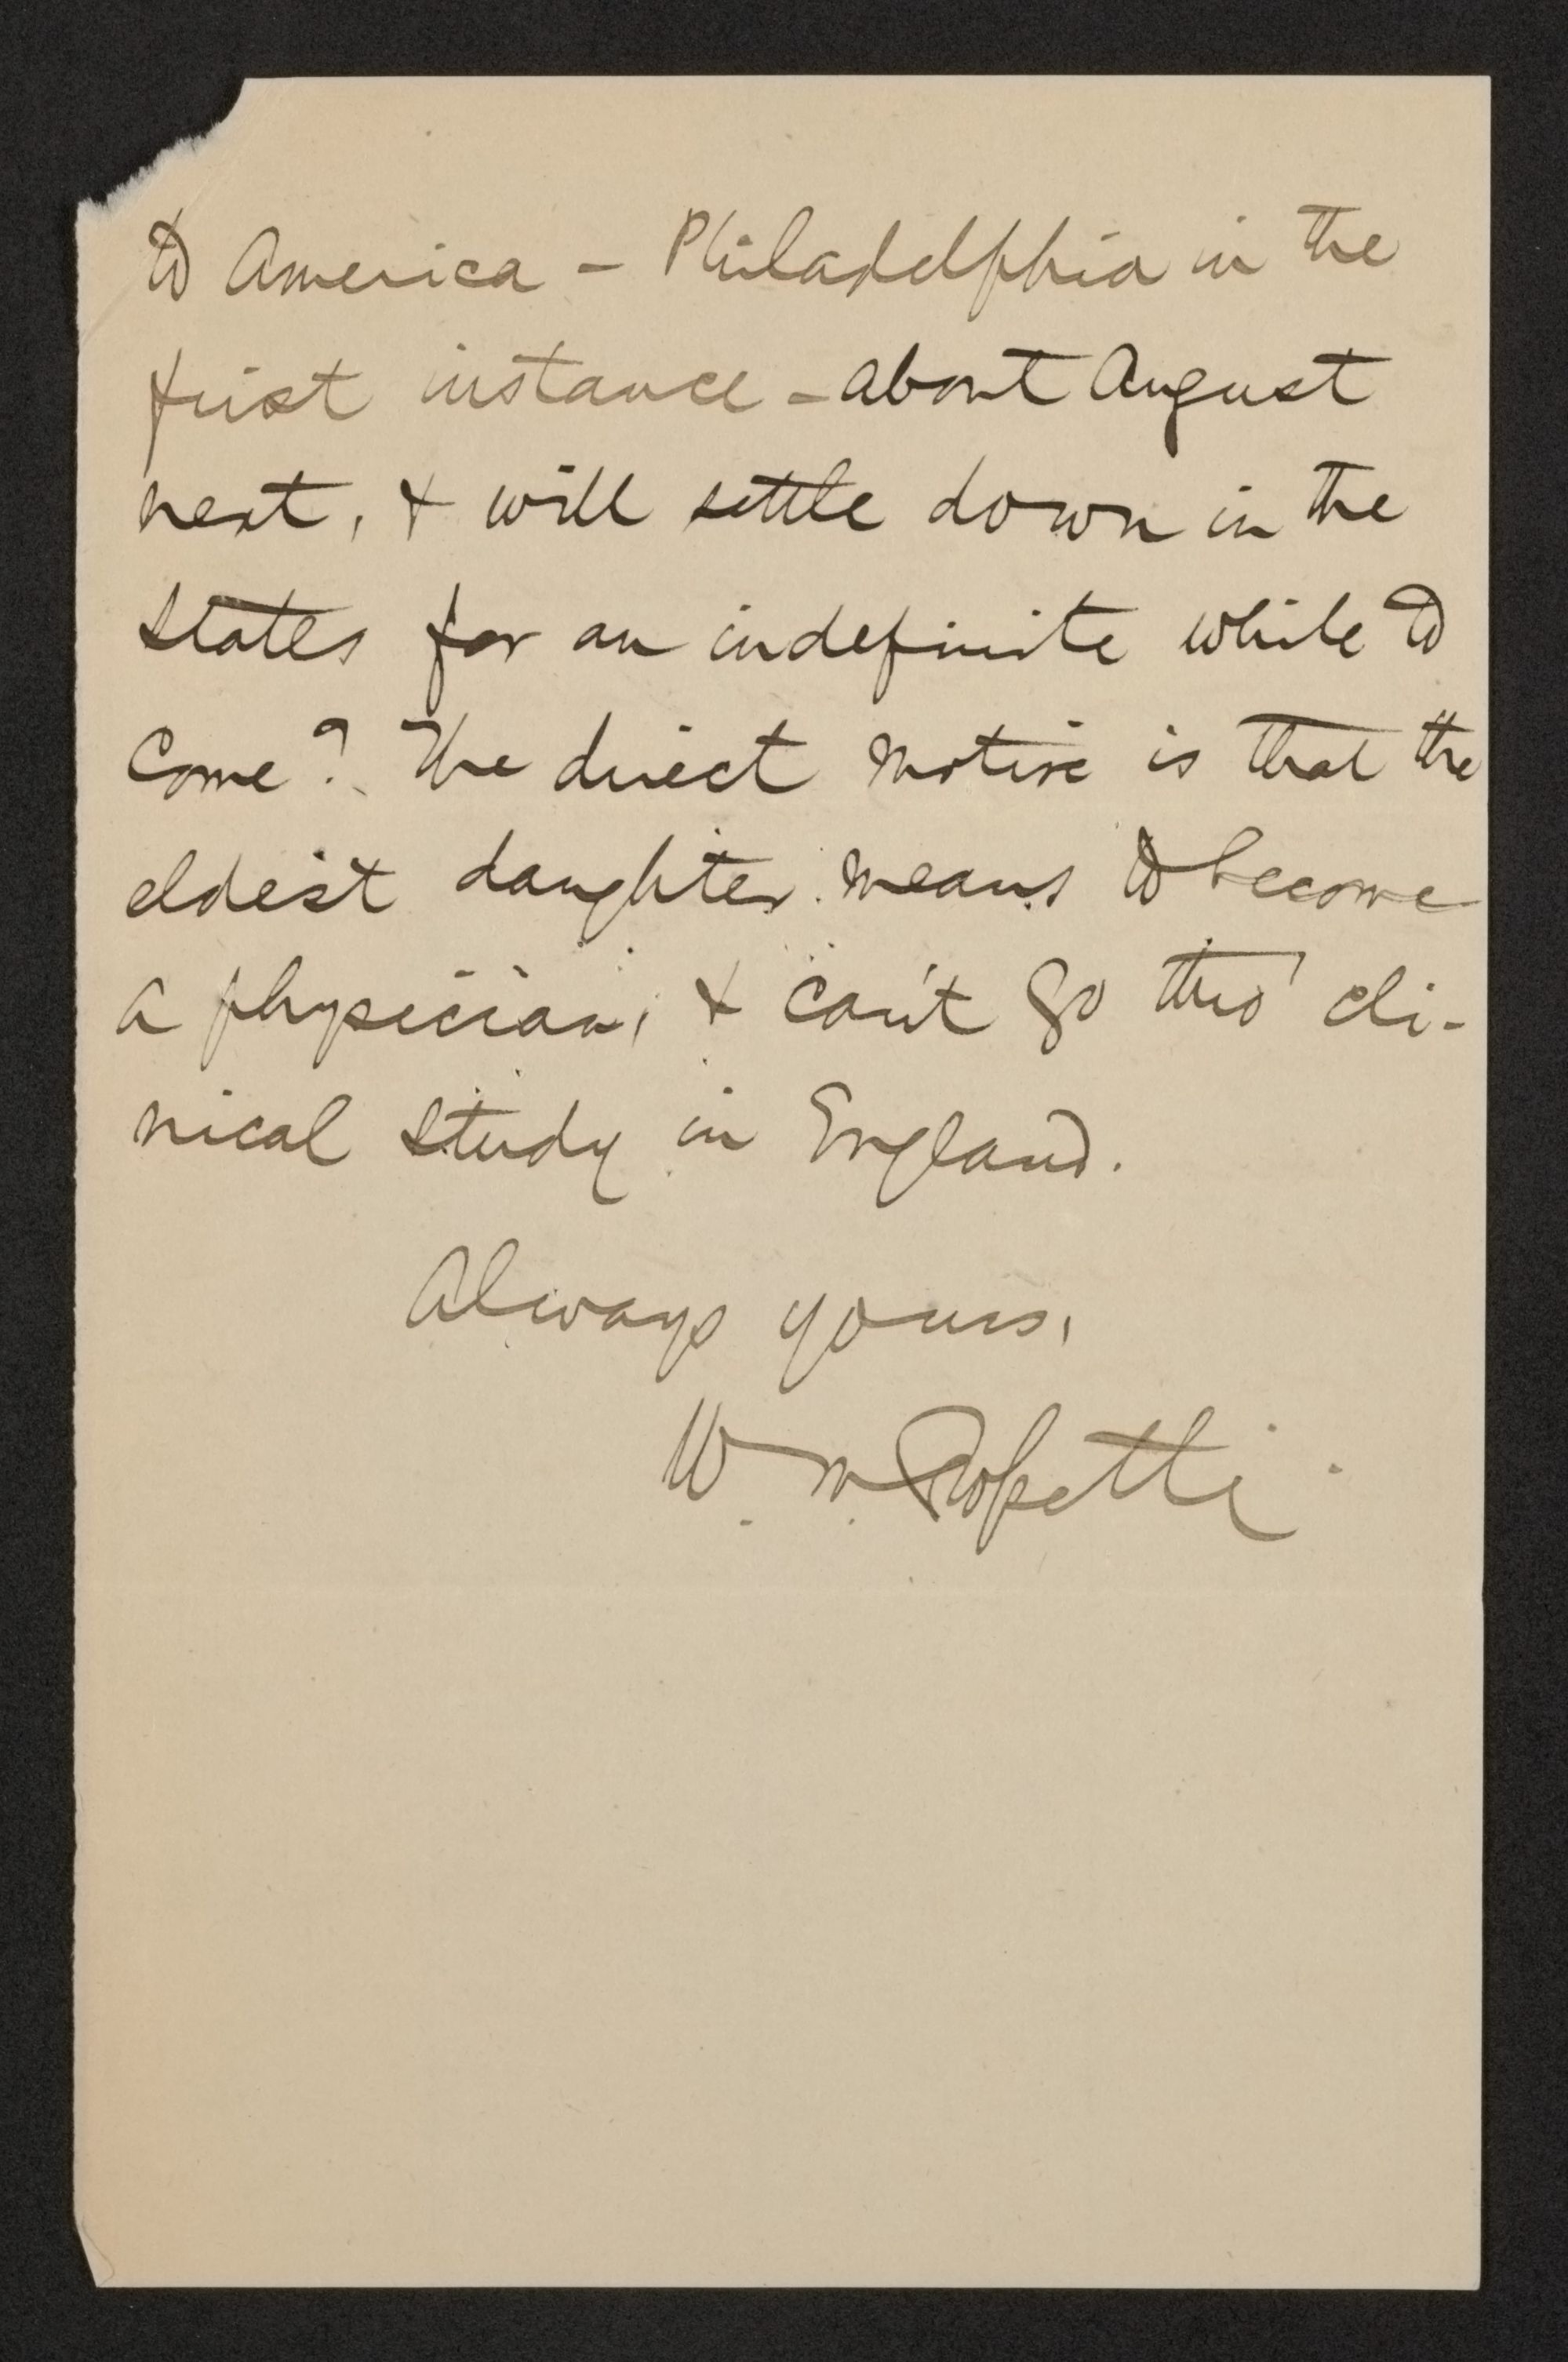 to America – Philadelphia in the
first instance – about August
next, & will settle down in the
States for an indefinite while to
come? The direct motive is that the
eldest daughter means to become
a physician, & can't go thro' cli-
nical study in England.
Always yours,
W. M. Rossetti